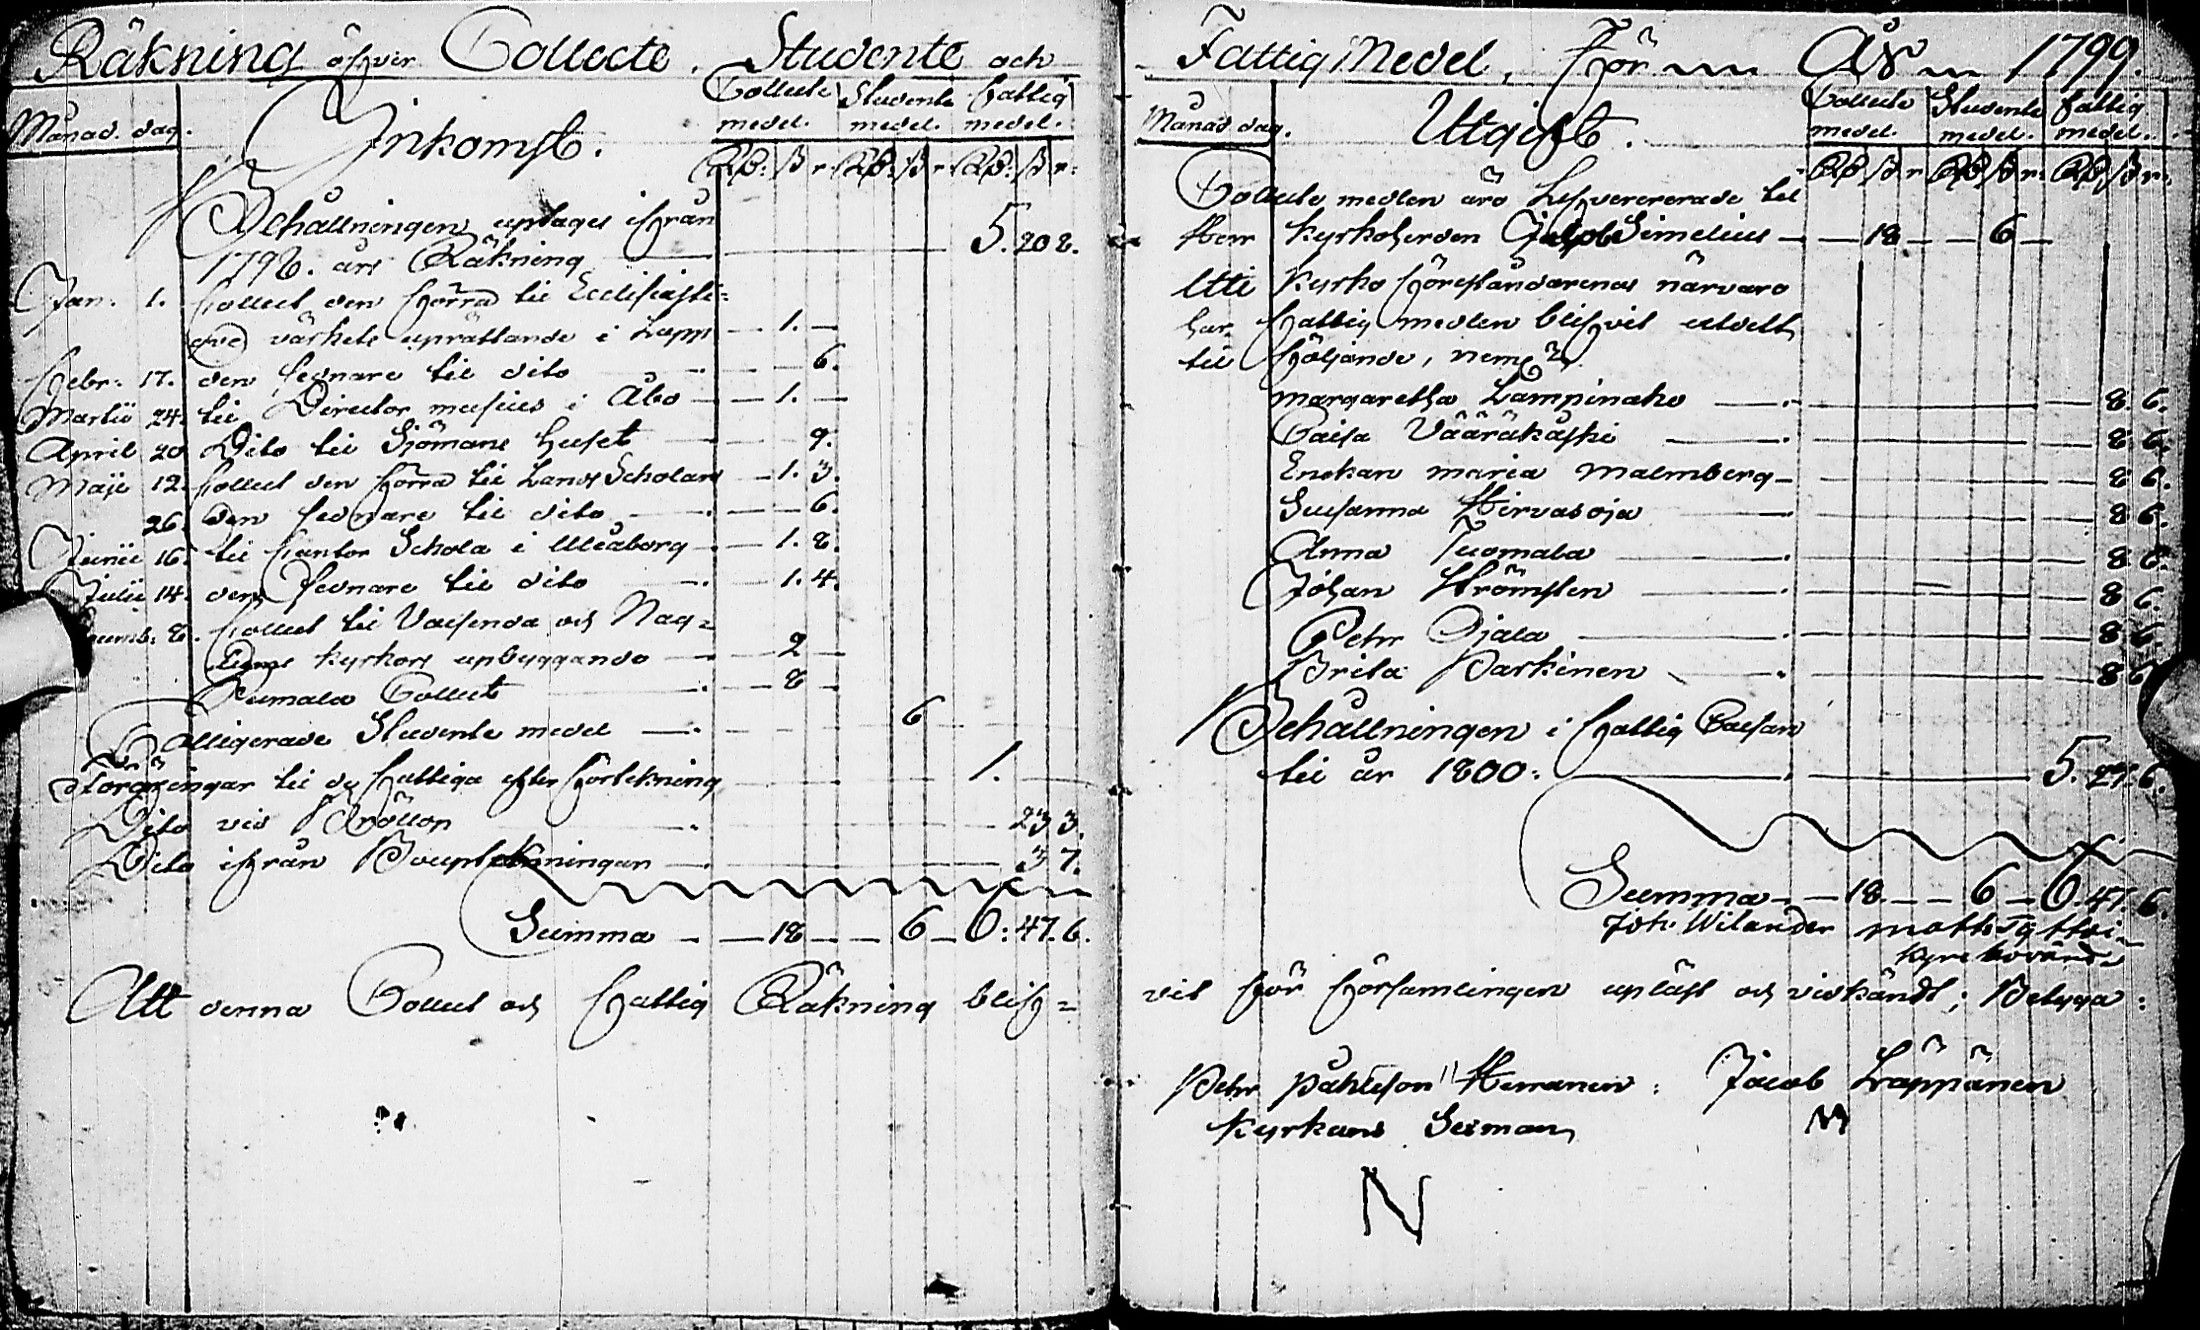 Räkning öfver Collecte, Studente och
Månad. dag. Inkomst. Collecte medel. Studente medel. Fattig medel.
Rd: ß r. Rd: ß r Rd: ß r.
Behållningen uptages ifrån
1798. års Räkning 5. 20 8.
Jan. 1. Collect den förra til Ecclesiasti=
que värkets uprättande i Lapp 1.
Febr. 17. den sednare til dito 6.
Martii 24. til Director musices i Åbo 1.
April 20 Dito til Sjömans huset 9.
Maji 12. Collect den förra til Lands Scholan 1. 3.
26. den sednare til dito 6.
Junii 16. til Cantor Schola i Uleåborg 1. 8.
Julii 14. den sednare til dito 1. 4.
8. Collect til Vaisenda och Nag=
kyrkors upbyggande 2
Pumala Collect 8
Colligerade Studente medel 6
til de fattiga efter förtekning 1.
Dito vid Bröllop 23 3.
Dito ifrån 3 7.
Summa 18 6 6: 47. 6.
Att denna Collect och Fattig Räkning blif=
Fattig Medel, För År 1799.
Månad dag. Utgift. Collecte medel. Studente medel. Fattig medel.
Rd ß r Rd ß r. Rd ß r.
Collecte medlen äro Lefvererade til
Herr Kyrkoherden Simelius 18 6
Uti Kyrko föreståndarenas närvaro
har fattig medlen blifvit utdelt
til följande, neml.
Margaretha Lampinaho 8. 6.
Caisa Vääräkäski 8. 6.
Enckan Maria Malmberg 8 6.
Susanna Hirvasoja 8 6.
Anna Tuomala 8 6.
Johan Strömsten 8 6.
Petr Ojala 8 6.
Brita Parkinen 8 6
Behållningen i fattig Cassan
til år 1800: 5. 27. 6.
Summa 18. 6 6. 47. 6.
Joh: Wilander matts
kyrckovärd
vit för församlingen upläst och vidkändt; Betyga:
Petr Herranen: Jacob Läppänen
Kyrkans Sexman
N